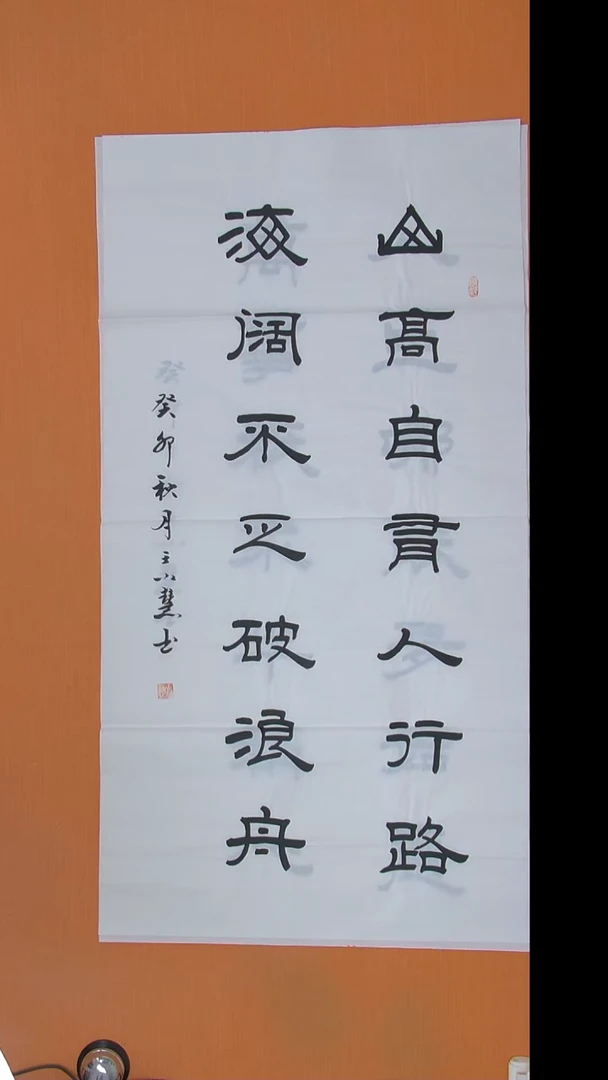 山高自有人行路
海阔不乏破浪舟
癸卯秋月王小慧书